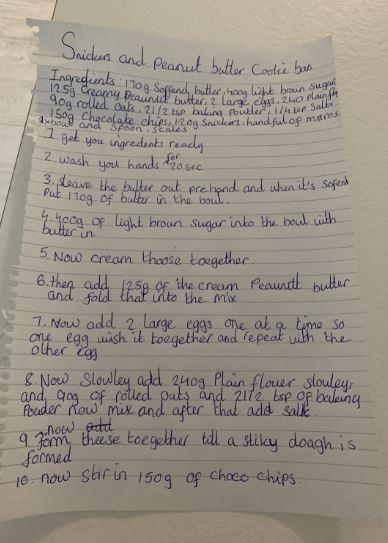 Snickers and Peanut butter Cookie bars
Ingredients: 170g Soffend butter, 400g light broun sugar
125g Creamy Peaunut butter, 2 large eggs, 240 plain flr
90g rolled oats, 2 1/2 tsp baking Pouder, 1/4 tsp Salt.
150g Chocolate chips, 120g Snickers, handful of m&ms
1xbowl and Spoon, scales
1. get you ingredients ready
2. wash you hands for 20 sec
3. Leave the butter out prehand and when it's Sofend
Put 170g of butter in the boul.
4. 400g of light broun sugar into the boul with
butter in.
5. Now cream thoose toegether.
6. then add 125g of the cream Peaundt butter
and fold that into the mix
7. Now add 2 large eggs one at a time so
one egg wish it toegether and repeat with the
other egg
8. Now Slowley add 240g Plain flouer slouley,
and 90g of rolled oats and 2 1/2 tsp of bakeing
Pouder now mix and after that add salt.
9. now add
form theese toegether till a stiky doagh is
formed
10. now stir in 150g of choco chips.